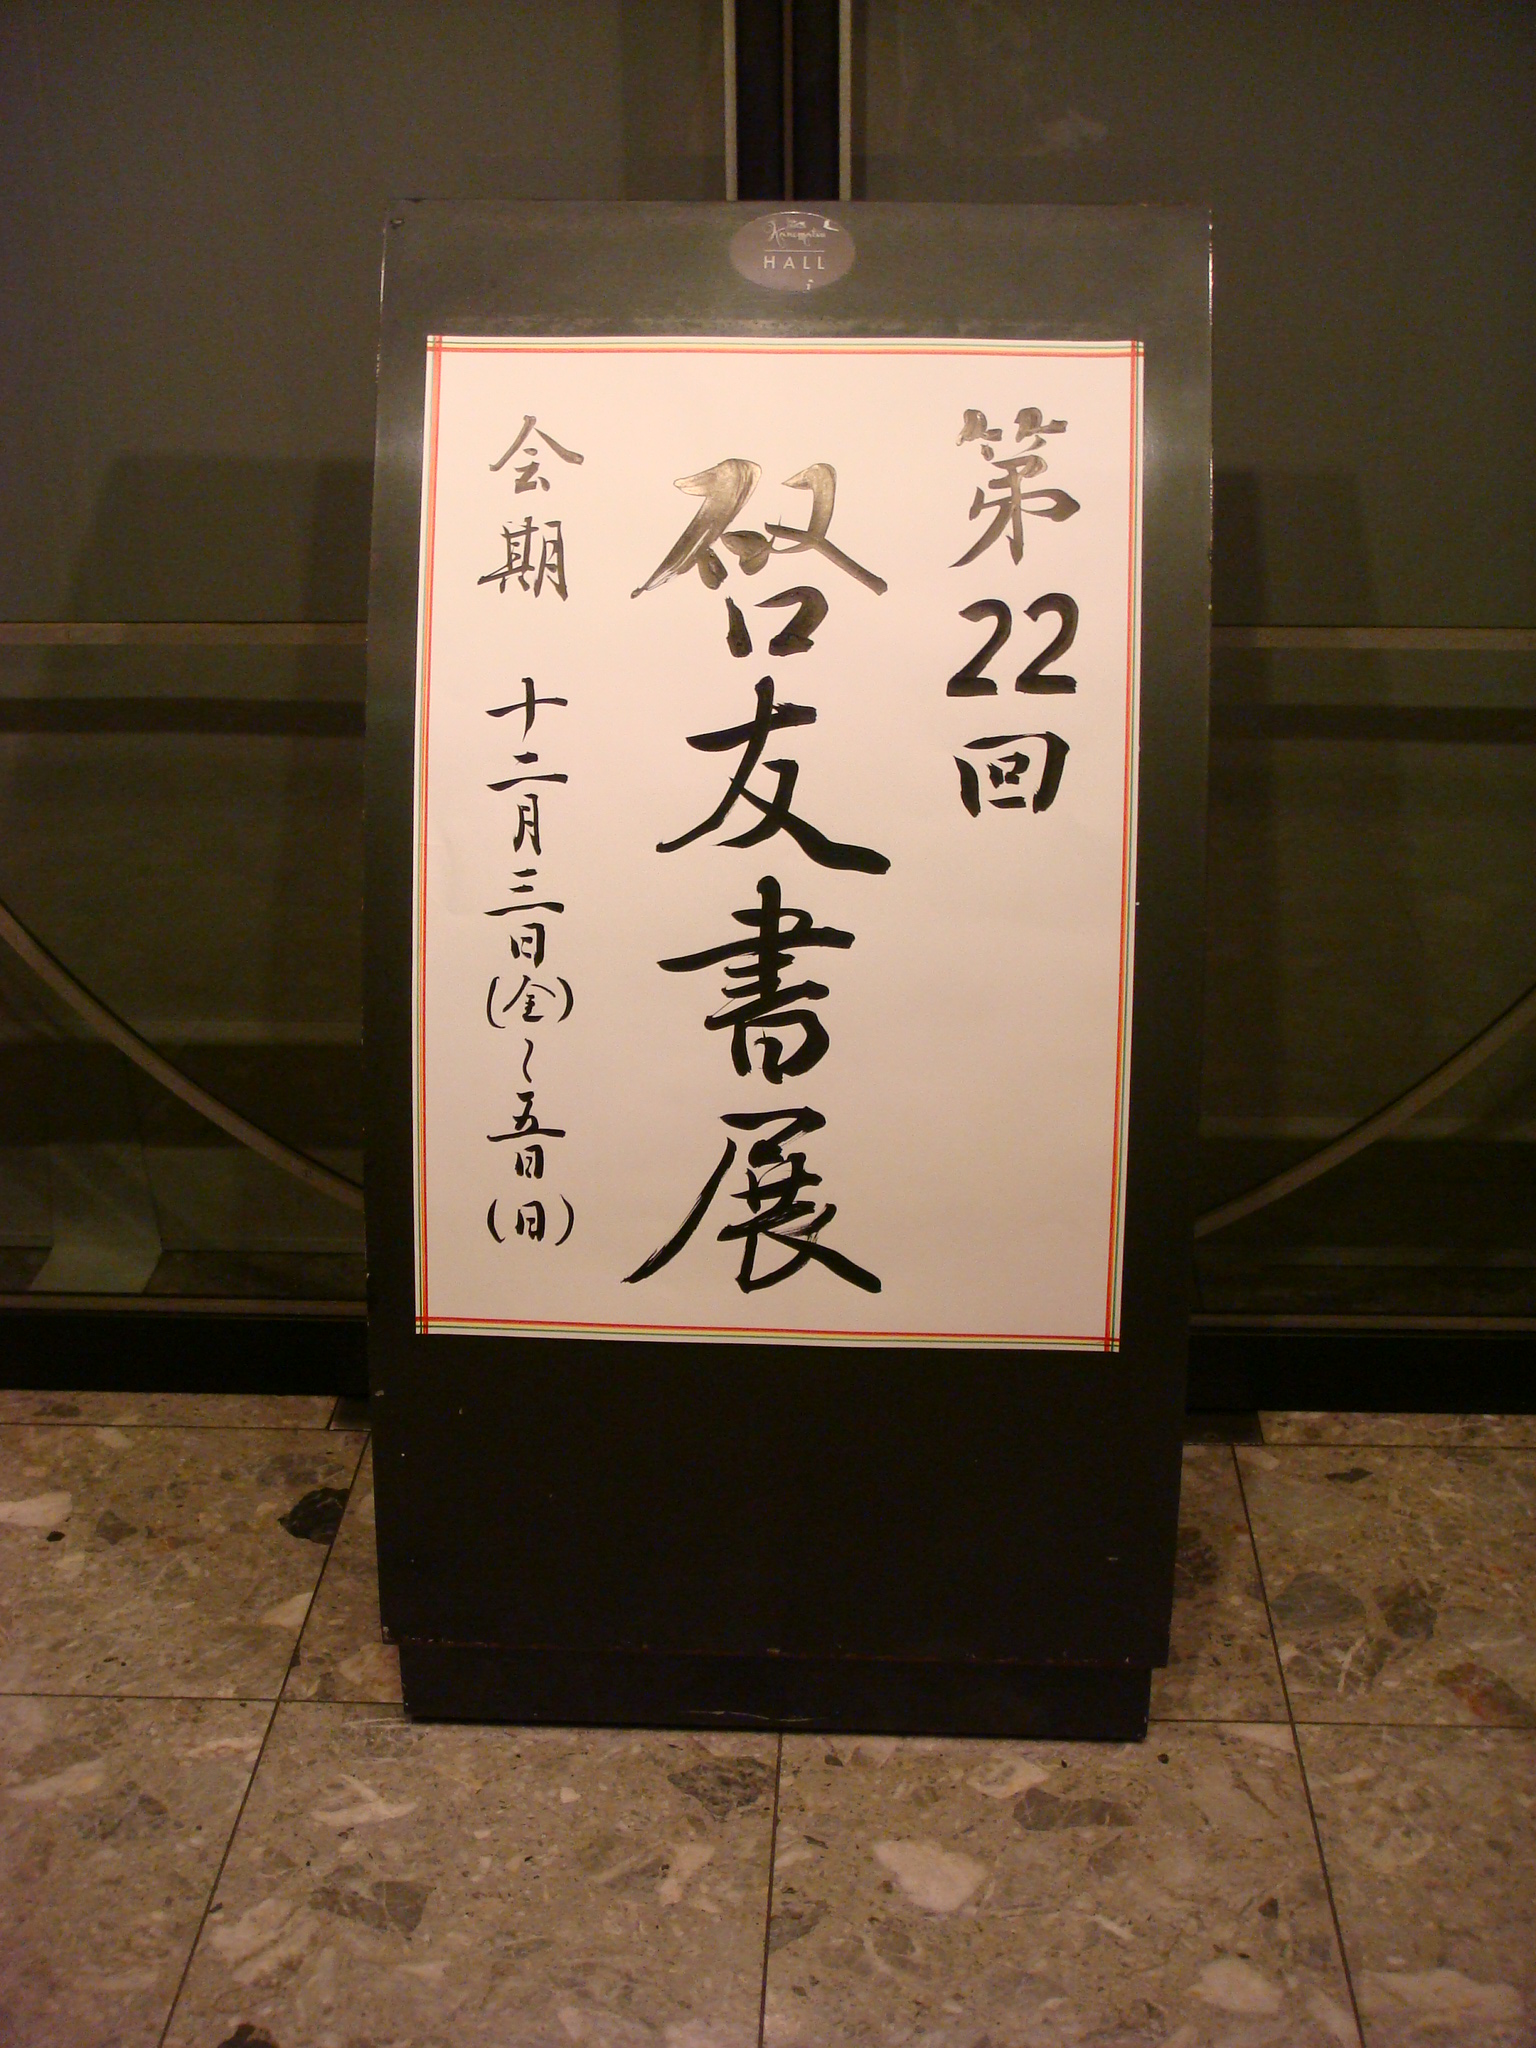 Kanematsu
HALL
第22回
啓友書展
会期 十二月三日(金)~五日(日)